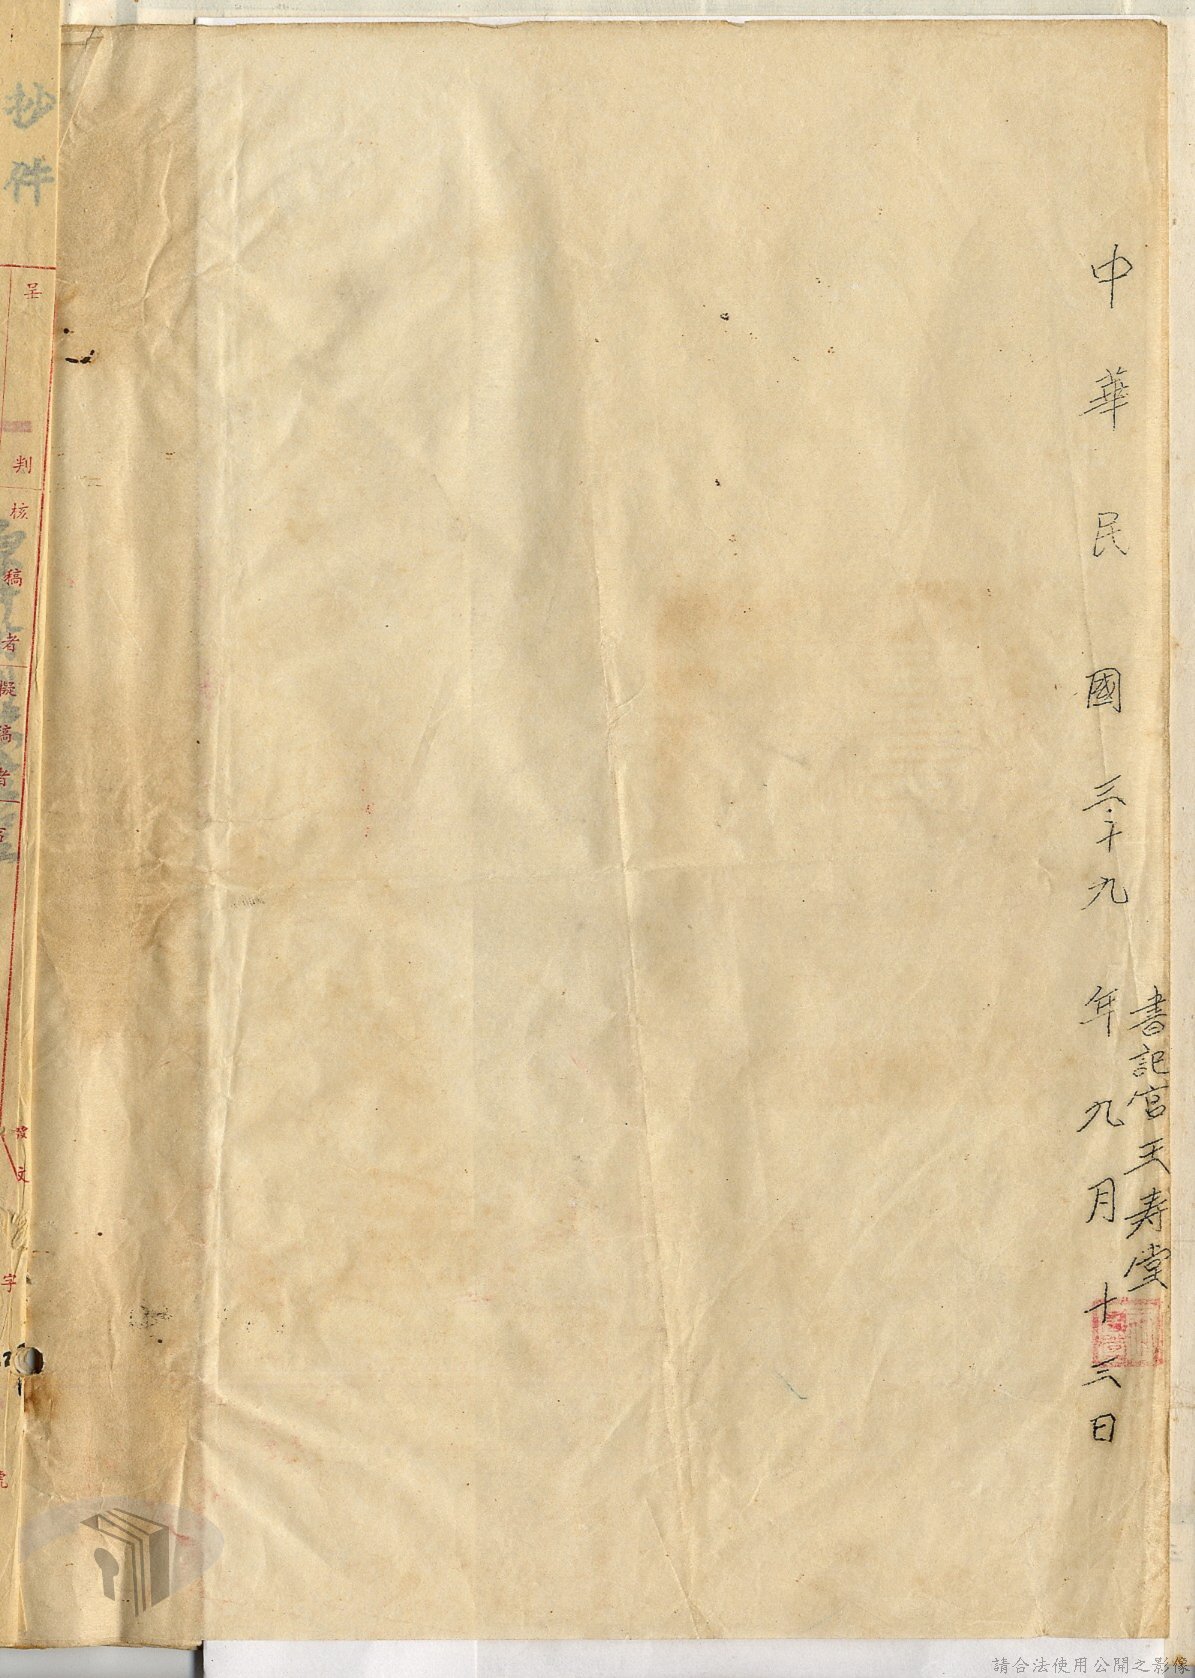 書記官王寿堂
中華民國三十九年九月十三日
抄件
呈
判
核稿者
擬稿者
發文
字
號
請合法使用公開之影像